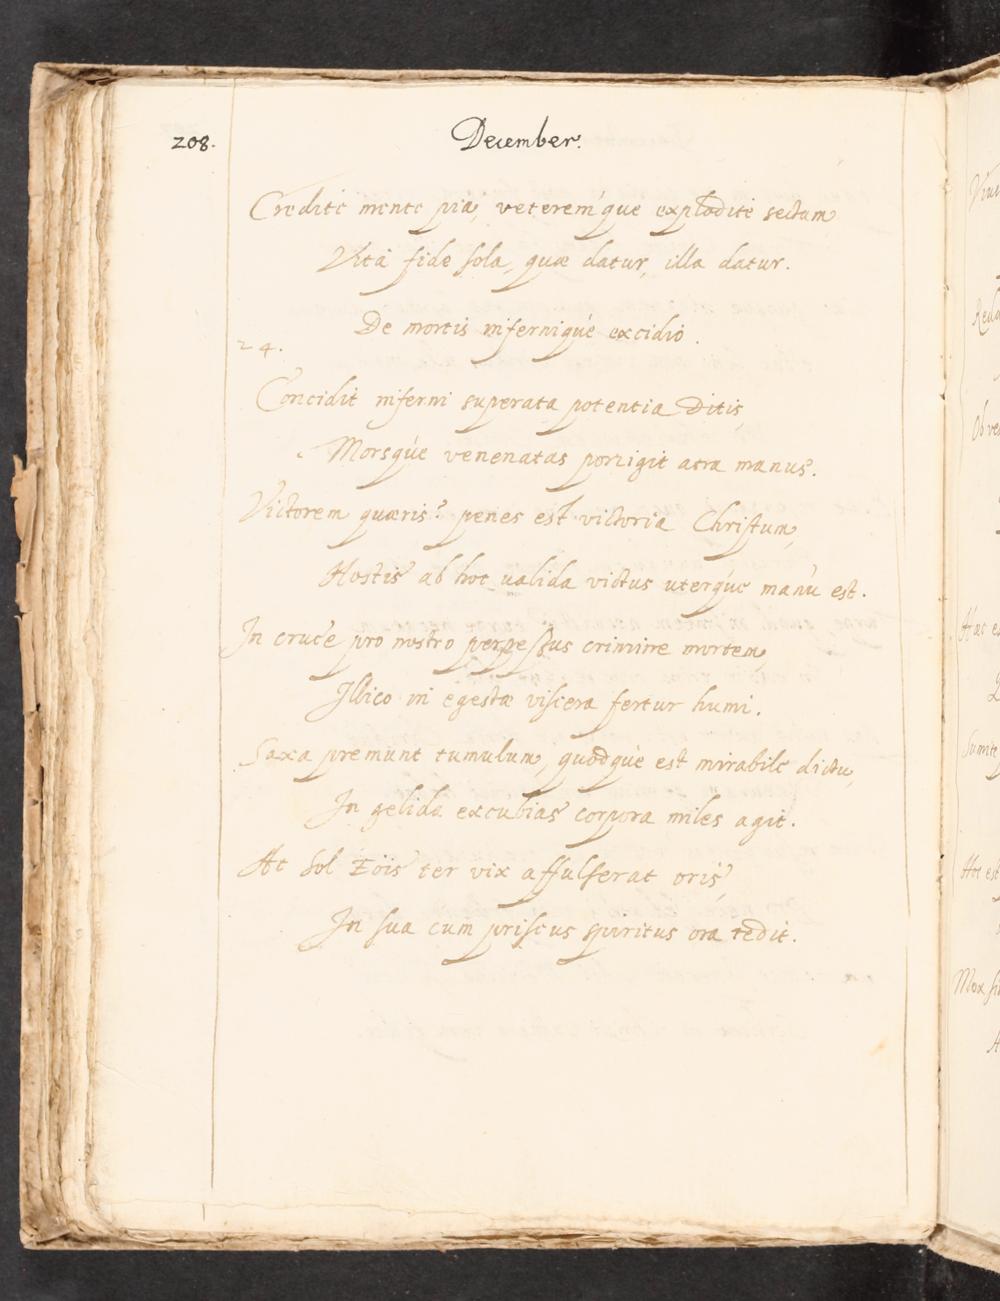 208.
December.
Credite mente pia, veteremque explodite sectam,
Vita fide sola, quæ datur, illa datur.
De mortis infernique excidio.
24.
Concidit inferni superata potentia Ditis,
Morsque venenatas porrigit atra manus.
Victorem quæris? penes est victoria Christum,
Hostis ab hoc valida victus uterque manu est.
In cruce pro nostro perpessus crimine mortem,
Illico in egestæ viscera fertur humi.
Saxa premunt tumulum, quodque est mirabile dictu,
In gelida excubias corpora miles agit.
At Sol Eöis ter vix affulserat oris,
In sua cum priscus spiritus ora redit.